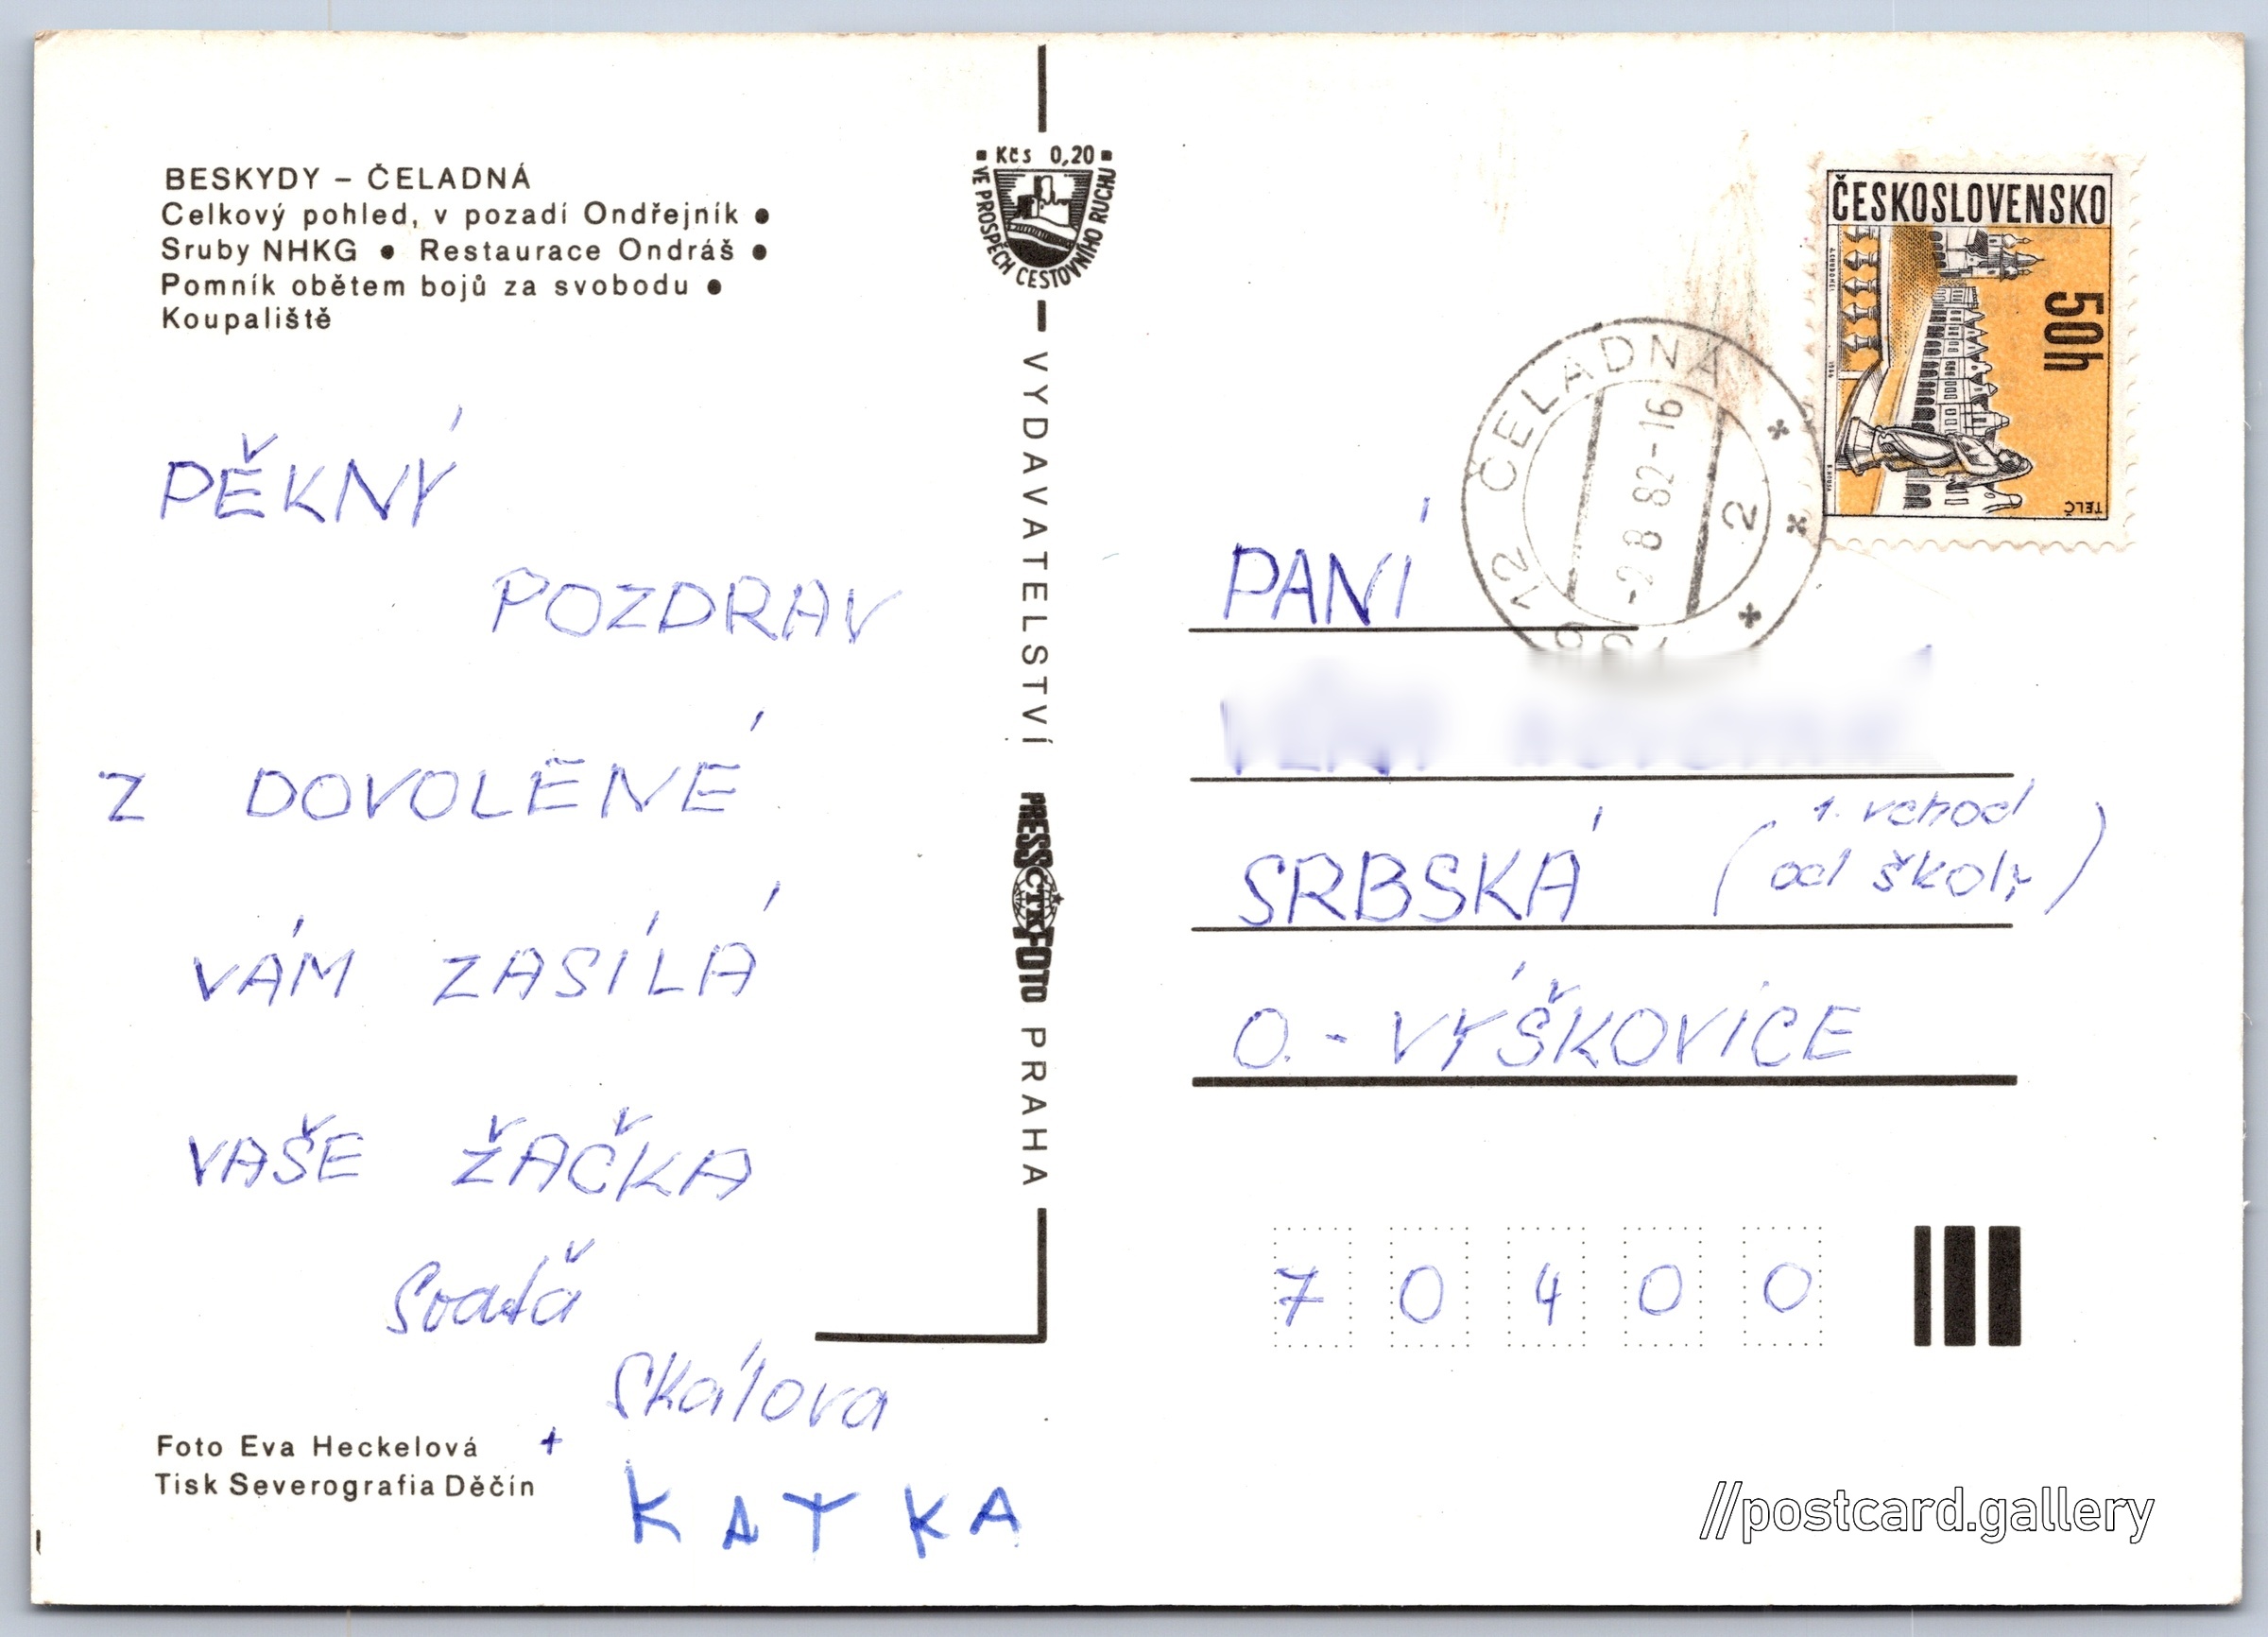 BESKYDY – ČELADNÁ
Celkový pohled, v pozadí Ondřejník ●
Sruby NHKG ● Restaurace Ondráš ●
Pomník obětem bojů za svobodu ●
Koupaliště
PĚKNÝ
POZDRAV
Z DOVOLENÉ
VÁM ZASÍLÁ
VAŠE ŽAČKA
Skálova
+
KATKA
Foto Eva Heckelová
Tisk Severografia Děčín
Kčs 0,20
VE PROSPĚCH CESTOVNÍHO RUCHU
VYDAVATELSTVÍ PRESSFOTO PRAHA
ČTK
ČESKOSLOVENSKO
50h
TELČ
ČELADNÁ
-2 8 82-16
2
PANÍ
SRBSKÁ (1. vchod
od školy)
O.- VÝŠKOVICE
7 0 4 0 0
//postcard.gallery